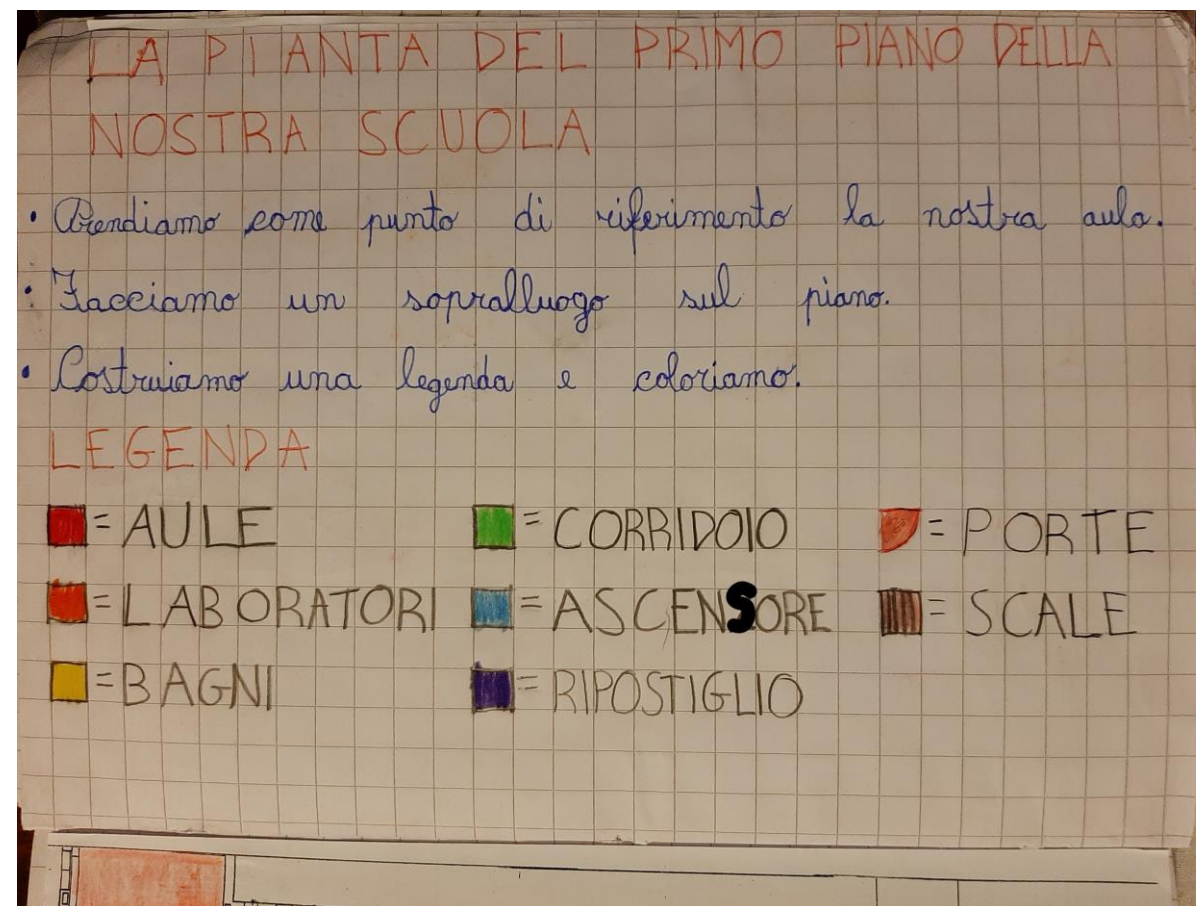 LA PIANTA DEL PRIMO PIANO DELLA
NOSTRA SCUOLA
• Prendiamo come punto di riferimento la nostra aula.
• Facciamo un sopralluogo sul piano.
• Costruiamo una legenda e coloriamo.
LEGENDA
= AULE = CORRIDOIO = PORTE
= LABORATORI = ASCENSORE = SCALE
= BAGNI = RIPOSTIGLIO